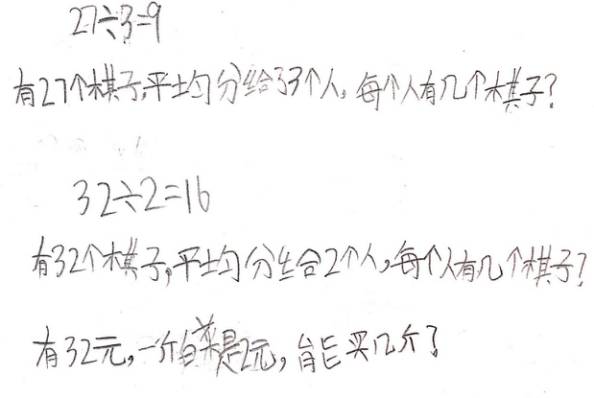 27÷3=9
有27个棋子,平均分给了3个人,每个人有几个棋子?
32÷2=16
有32个棋子,平均分给2个人,每个人有几个棋子?
有32元,一斤白菜是2元,能买几斤?